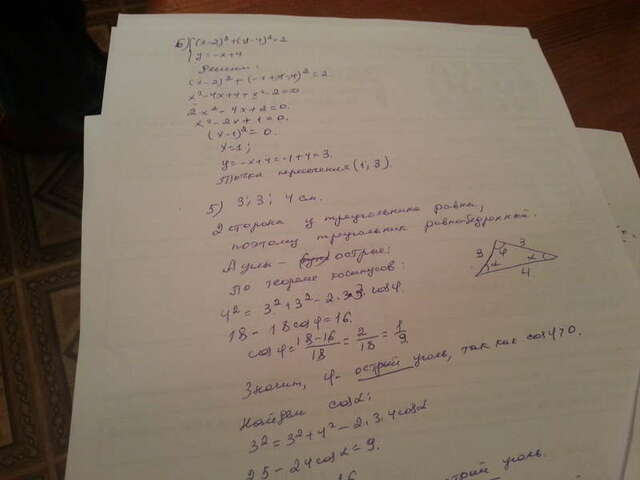 б) { (x-2)² + (y-4)² = 2
y = -x+4
Решение:
(x-2)² + (-x+4-4)² = 2
x² - 4x + 4 + x² - 2 = 0
2x² - 4x + 2 = 0.
x² - 2x + 1 = 0.
(x-1)² = 0.
x = 1;
y = -x+4 = -1+4 = 3.
Точка пересечения (1; 3).
5) 3; 3; 4 см.
2 сторона у треугольника равны,
поэтому треугольник равнобедренный.
Углы - острые:
По теореме косинусов:
4² = 3² + 3² - 2·3·3·cosφ.
18 - 18cosφ = 16.
cosφ = 18-16/18 = 2/18 = 1/9
Значит, φ - острый уголь, так как cosφ>0.
Найдем cosα:
3² = 3² + 4² - 2·3·4cosα
25 - 24cosα = 9.
16
острый уголь.
3
3
φ
α
α
4